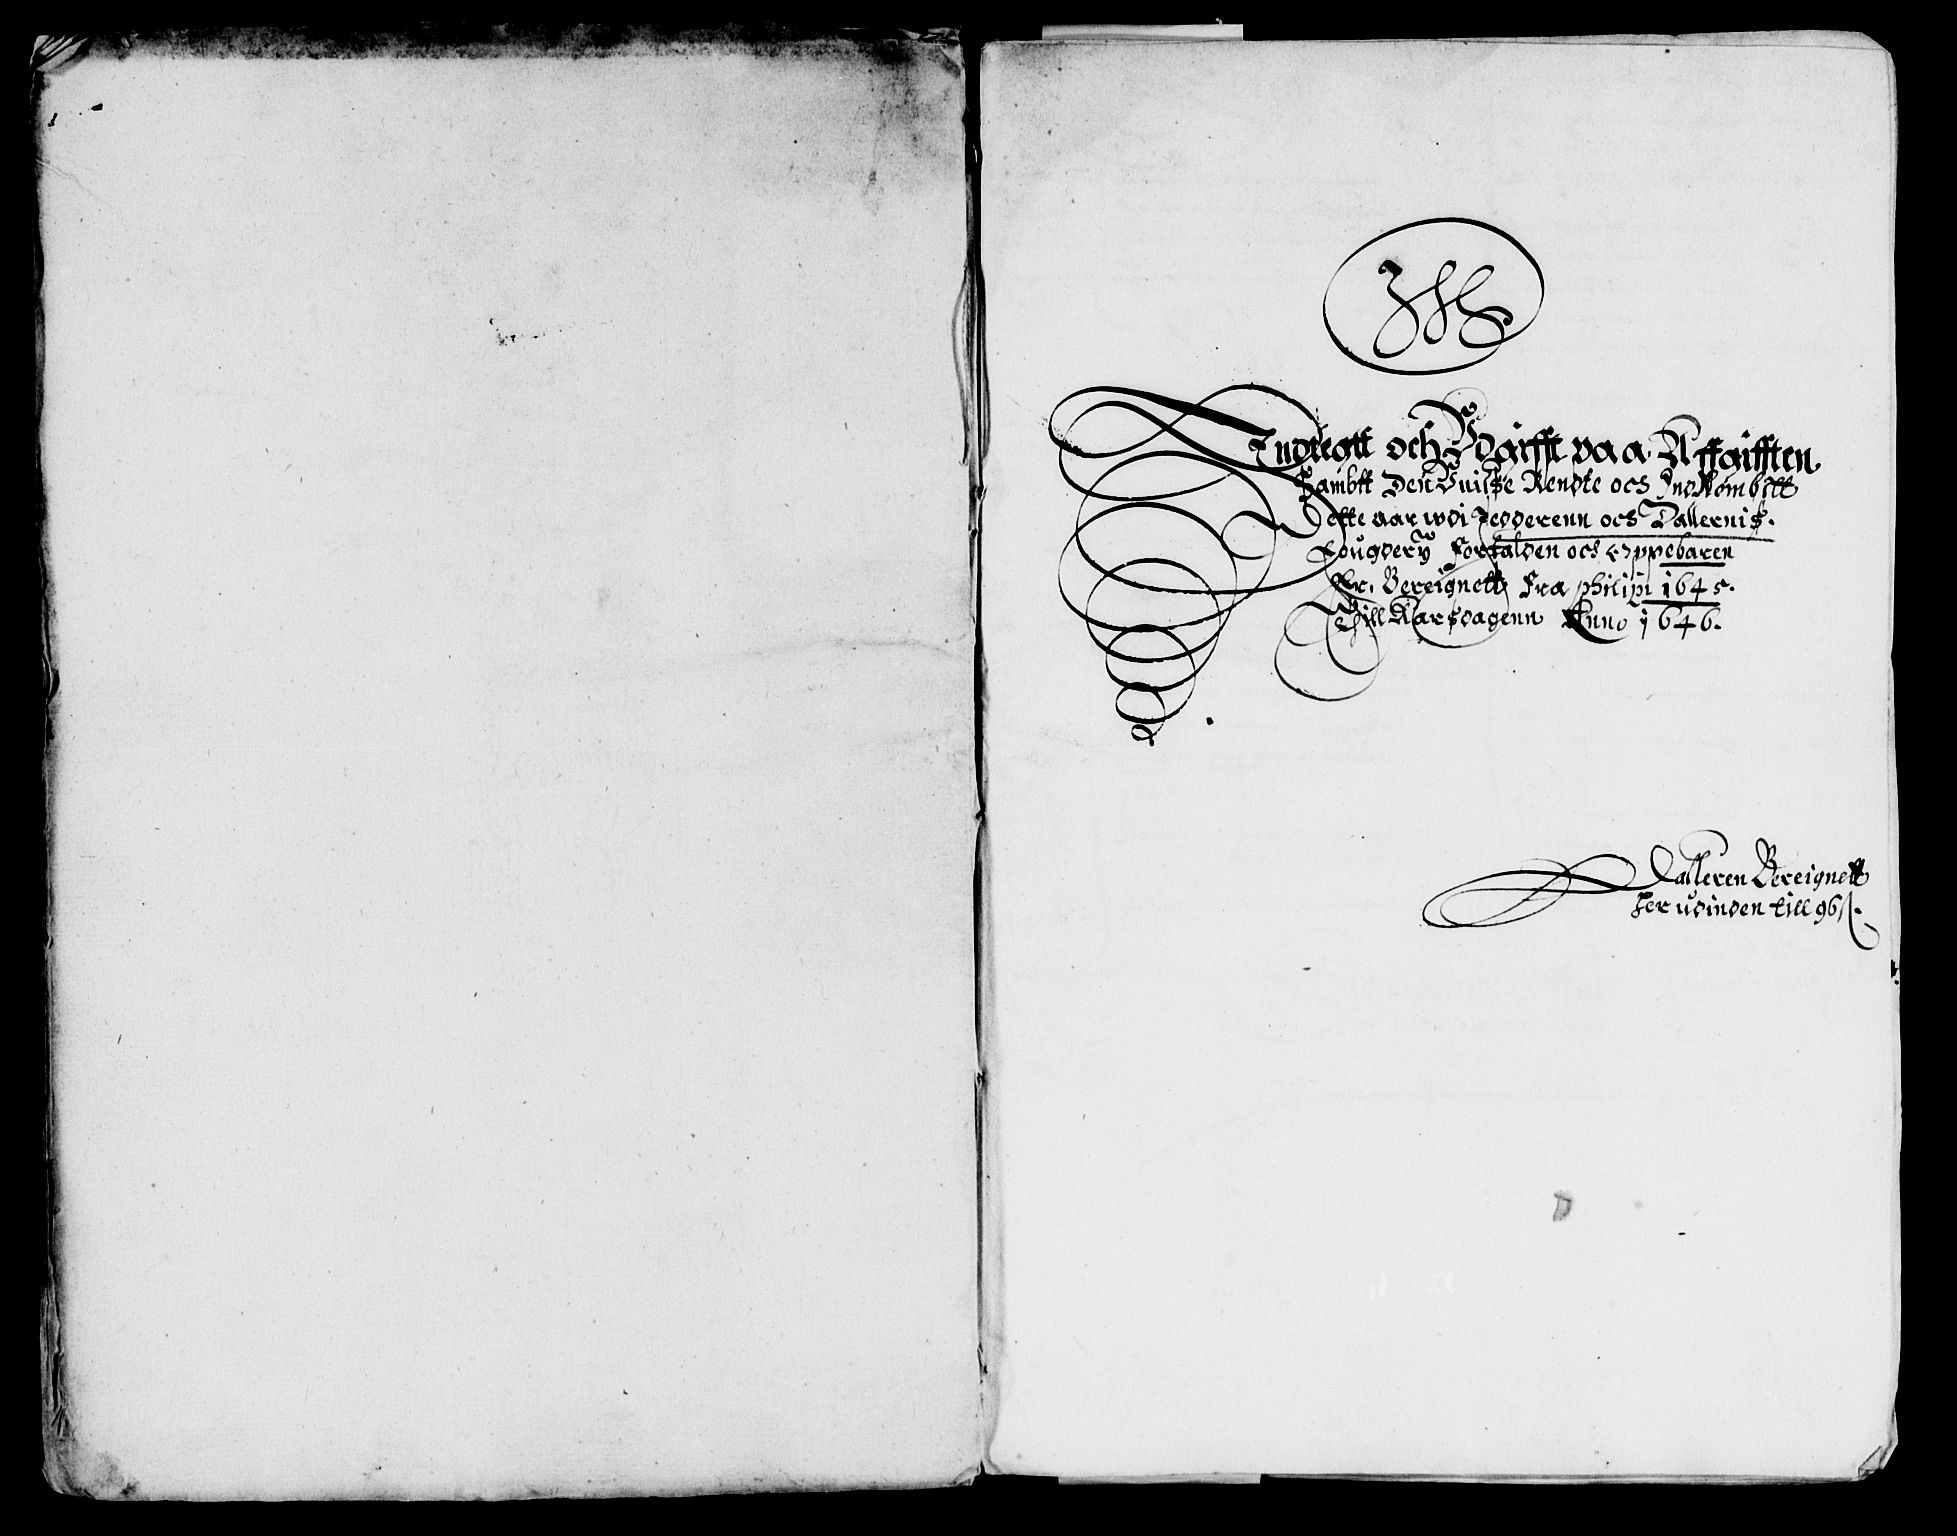 Indtegtt och Vdgifft paa Affgifften
Sambtt Den Vuisse Rendte och Indkombstt
Dette aar wdi Jedderenn och Dallernis
Fougdery Forfalden och Oppebaren
Er, Bereignett Fra Philipi 1645.
Till Aarsdagenn Anno 1646.
Dalleren Bereignett
Her udinden till 96 ß.